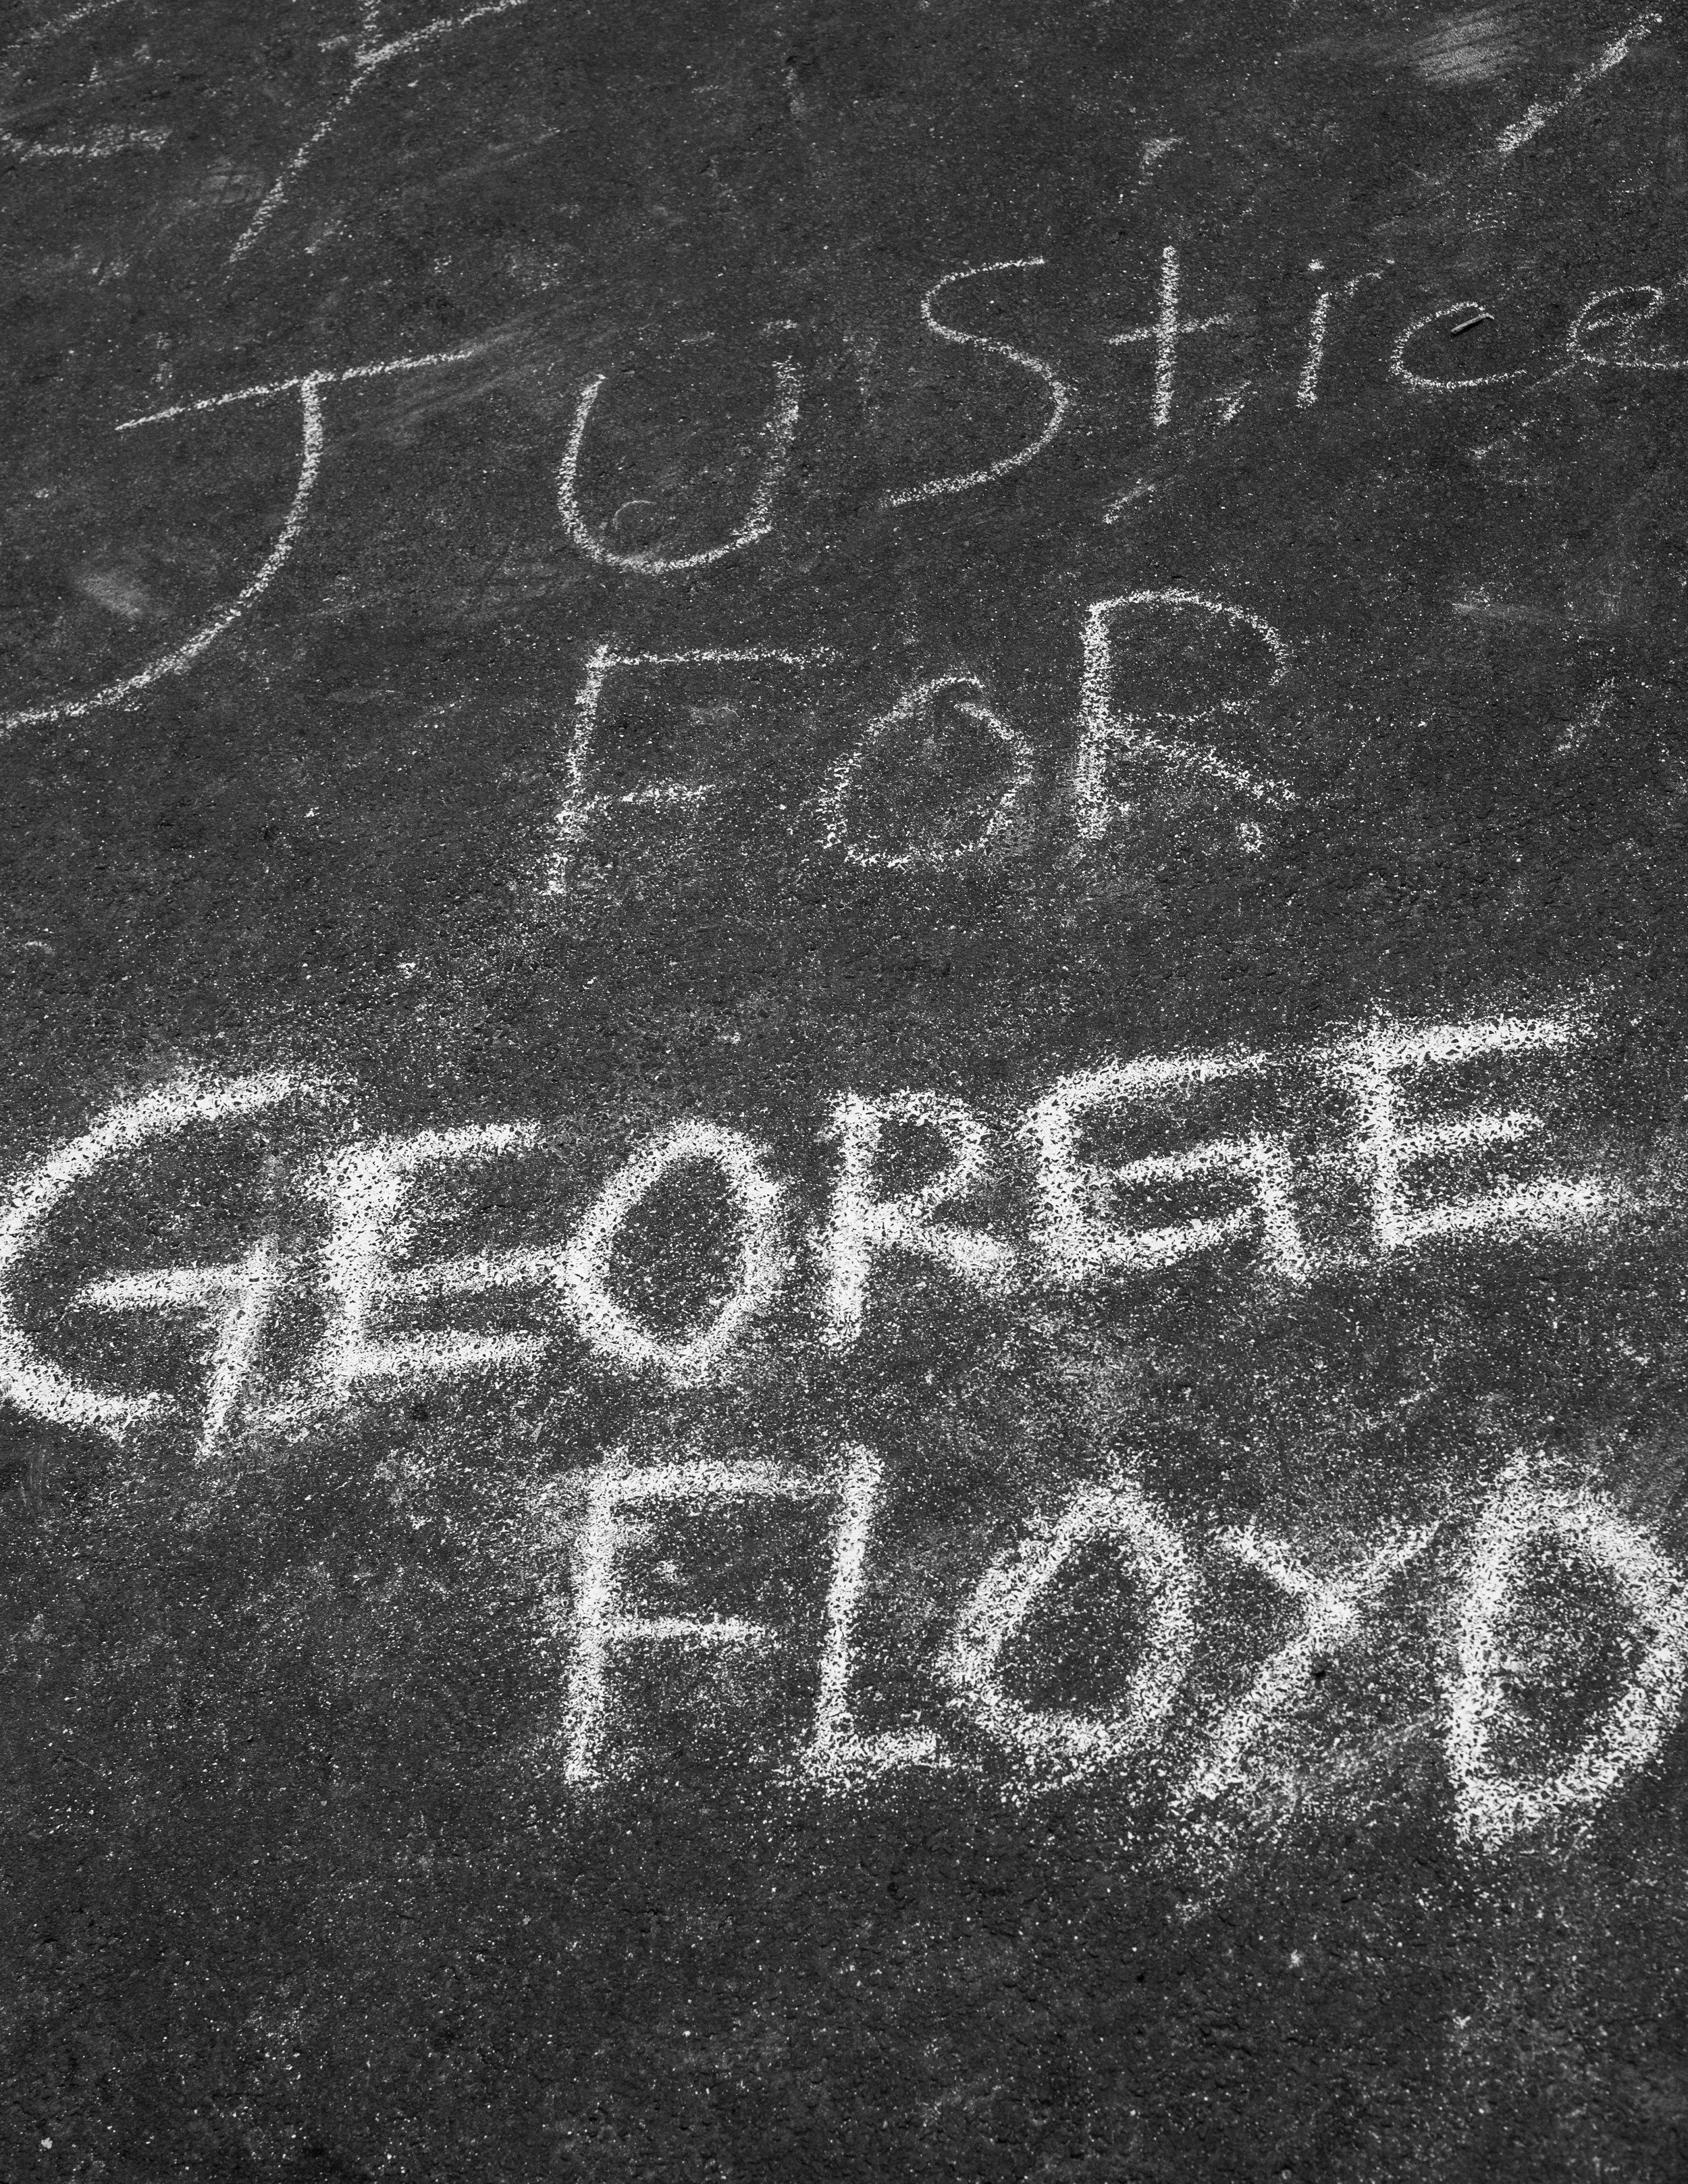 JUStice
FOR
GEORGE
FLOYD